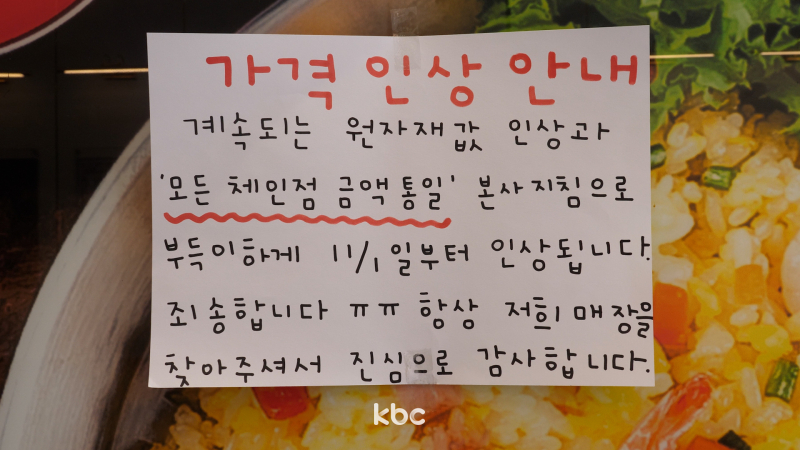 가격 인상 안내
계속 되는 원자재값 인상과
'모든 체인점 금액통일' 본사지침으로
부득이하게 11/1 일부터 인상됩니다.
죄송합니다 ㅠㅠ 항상 저희 매장을
찾아주셔서 진심으로 감사합니다.
kbc